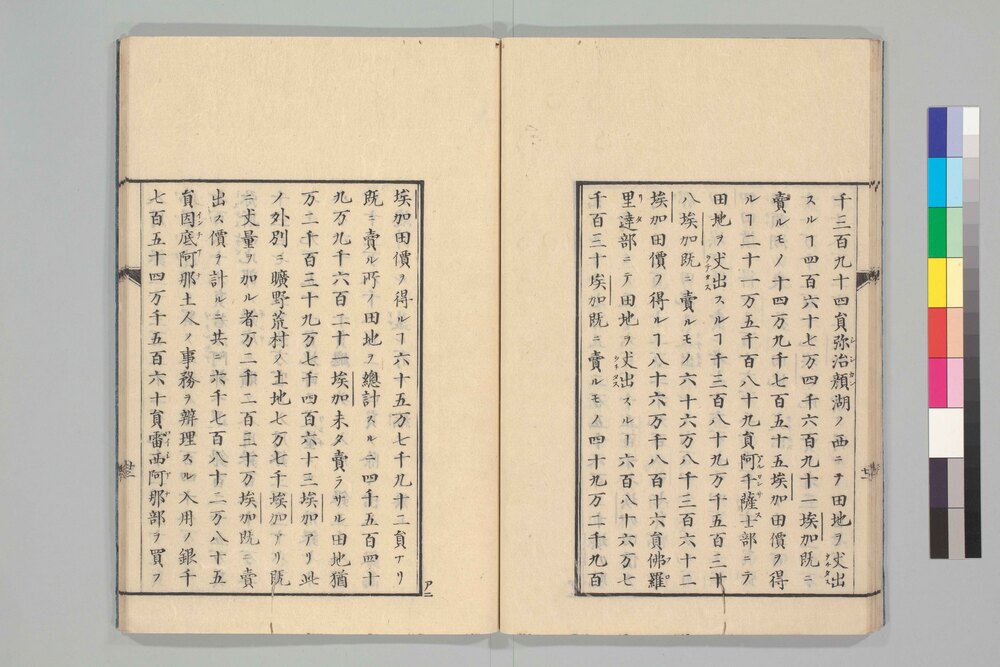 千三百九十四員弥治顔湖ノ西ニテ田地ヲ丈出
スルヿ四百六十七万四千六百九十一埃加既ニ
賣ルモノ十四万九千七百五十五埃加田價ヲ得
ルヿ二十一万五千百八十九員阿千薩士部ニテ
田地ヲ丈出スルヿ千三百八十九万千五百三十
八埃加既ニ賣ルモノ六十六万八千三百六十二
埃加田價ヲ得ルヿ八十六万千八百十六員佛羅
里達部ニテ田地ヲ丈出スルヿ六百八十六万七
千百三十埃加既ニ賣ルモノ四十九万二千九百
埃加田價ヲ得ルヿ六十五万七千九十二員ナリ
既ニ賣ル所ノ田地ヲ總計スルニ四千五百四十
九万九千六百二十一埃加未タ賣ラサル田地猶
万二千百三十九万七千四百六十三埃加アリ此
ノ外別ニ曠野荒村ノ土地七万七千埃加アリ既
ニ丈量ヲ加ル者万二千二百三十万埃加既ニ賣
出ス價ヲ計ルニ共ニ六千七百八十二万八十五
員因底阿那土人ノ事務ヲ辨理スル入用ノ銀千
七百五十四万千五百六十員雷西阿那部ヲ買フ